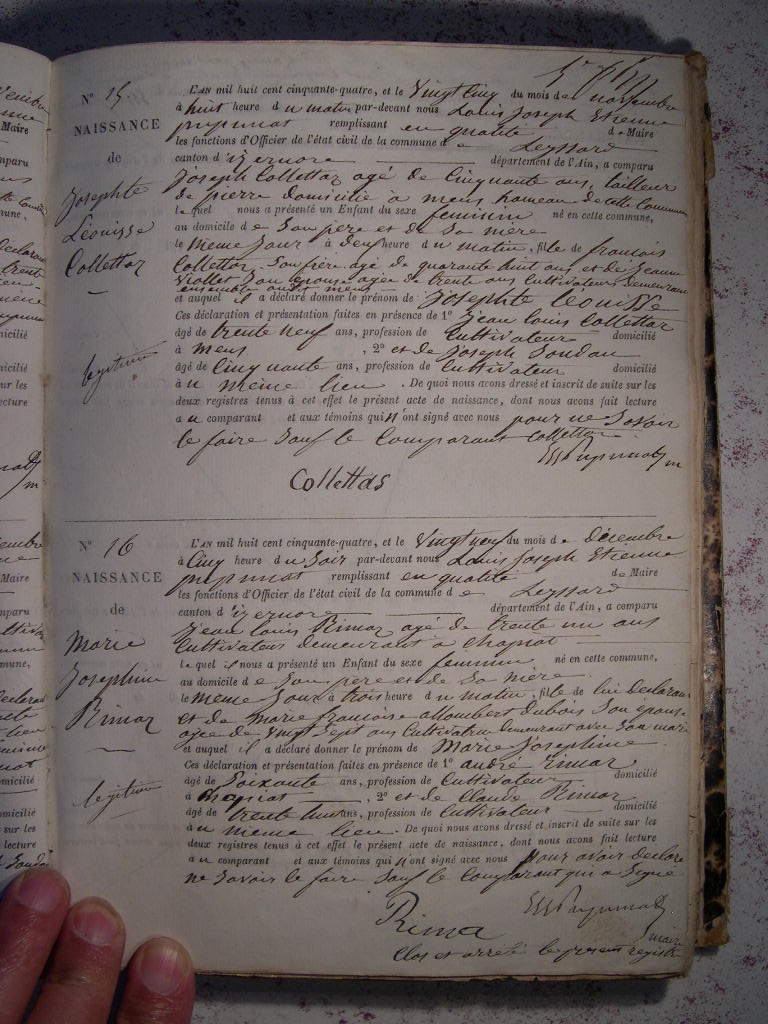 N° 15.
NAISSANCE
de
Josephte
Léouisse
Collettaz
legitime
L'AN mil huit cent cinquante-quatre, et le Vingt cinq du mois de novembre
à huit heure du matin par-devant nous Louis Joseph Etienne
remplissant en qualité de Maire
les fonctions d'Officier de l'état civil de la commune de Leyssard
canton d'izernore département de l'Ain, a comparu
Joseph Collettaz agé de Cinquante ans, tailleur
de pierre domicilié à mens, hameau de cette Commune
lequel nous a présenté un Enfant du sexe feminin né en cette commune,
au domicile de son pere et de sa mere
le meme jour à deux heure du matin, fille de francois
Collettaz, son frère agé de quarante huit ans et de Jeanne
Viollet son epouse agée de trente ans Cultivateurs demeurant
ensemble audit mens
et auquel il a déclaré donner le prénom de Josephte leouisse
Ces déclaration et présentation faites en présence de 1° Jean Louis Collettaz
âgé de trente neuf ans, profession de Cultivateur domicilié
à mens, 2° et de Joseph Soudan
âgé de Cinquante ans, profession de Cultivateur domicilié
à u meme lieu. De quoi nous avons dressé et inscrit de suite sur les
deux registres tenus à cet effet le présent acte de naissance, dont nous avons fait lecture
au comparant et aux témoins qui n'ont signé avec nous pour ne savoir
le faire sauf le Comparant Collettaz.
Collettas
N° 16
NAISSANCE
de
Marie
Josephine
Rimaz
legitime
L'AN mil huit cent cinquante-quatre, et le Vingt neuf du mois de décembre
à Cinq heure du soir par-devant nous Louis Joseph Etienne
remplissant en qualité de Maire
les fonctions d'Officier de l'état civil de la commune de Leyssard
canton d'izernore département de l'Ain, a comparu
Jean Louis Rimaz agé de trente un ans
Cultivateur demeurant à chapiat
lequel il nous a présenté un Enfant du sexe feminin né en cette commune,
au domicile de son pere et de sa mère
le meme jour à trois heure du matin, fille de lui declarant
et de marie francoise allombert dubois son epouse
agée de vingt sept ans Cultivateur demeurant avec son mari
et auquel il a déclaré donner le prénom de Marie Josephine
Ces déclaration et présentation faites en présence de 1° andré rimaz
âgé de Soixante ans, profession de Cultivateur domicilié
à chapiat, 2° et de Claude Rimaz
âgé de trente huit ans, profession de Cultivateur domicilié
à u meme lieu. De quoi nous avons dressé et inscrit de suite sur les
deux registres tenus à cet effet le présent acte de naissance, dont nous avons fait lecture
au comparant et aux témoins qui n'ont signé avec nous pour avoir declaré
ne savoir le faire sauf le Comparant qui a Signé
Rima
maire
Clos et arrété le present registre